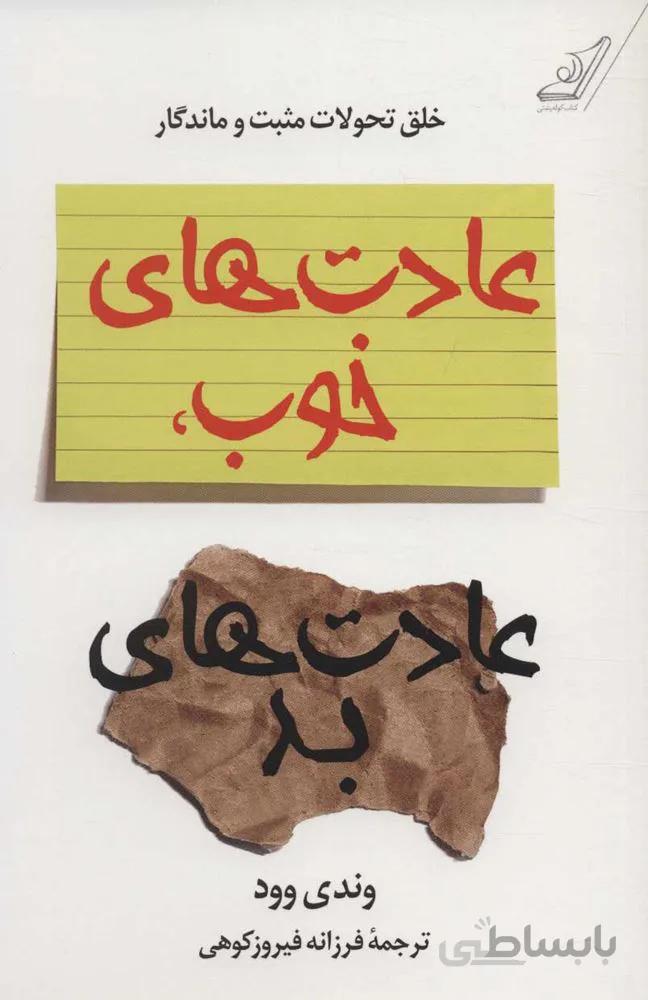 کتاب کوله‌پشتی
خلق تحولات مثبت و ماندگار
عادت‌های
خوب،
عادت‌های
بد
وندی وود
ترجمهٔ فرزانه فیروزکوهی
بابساطی